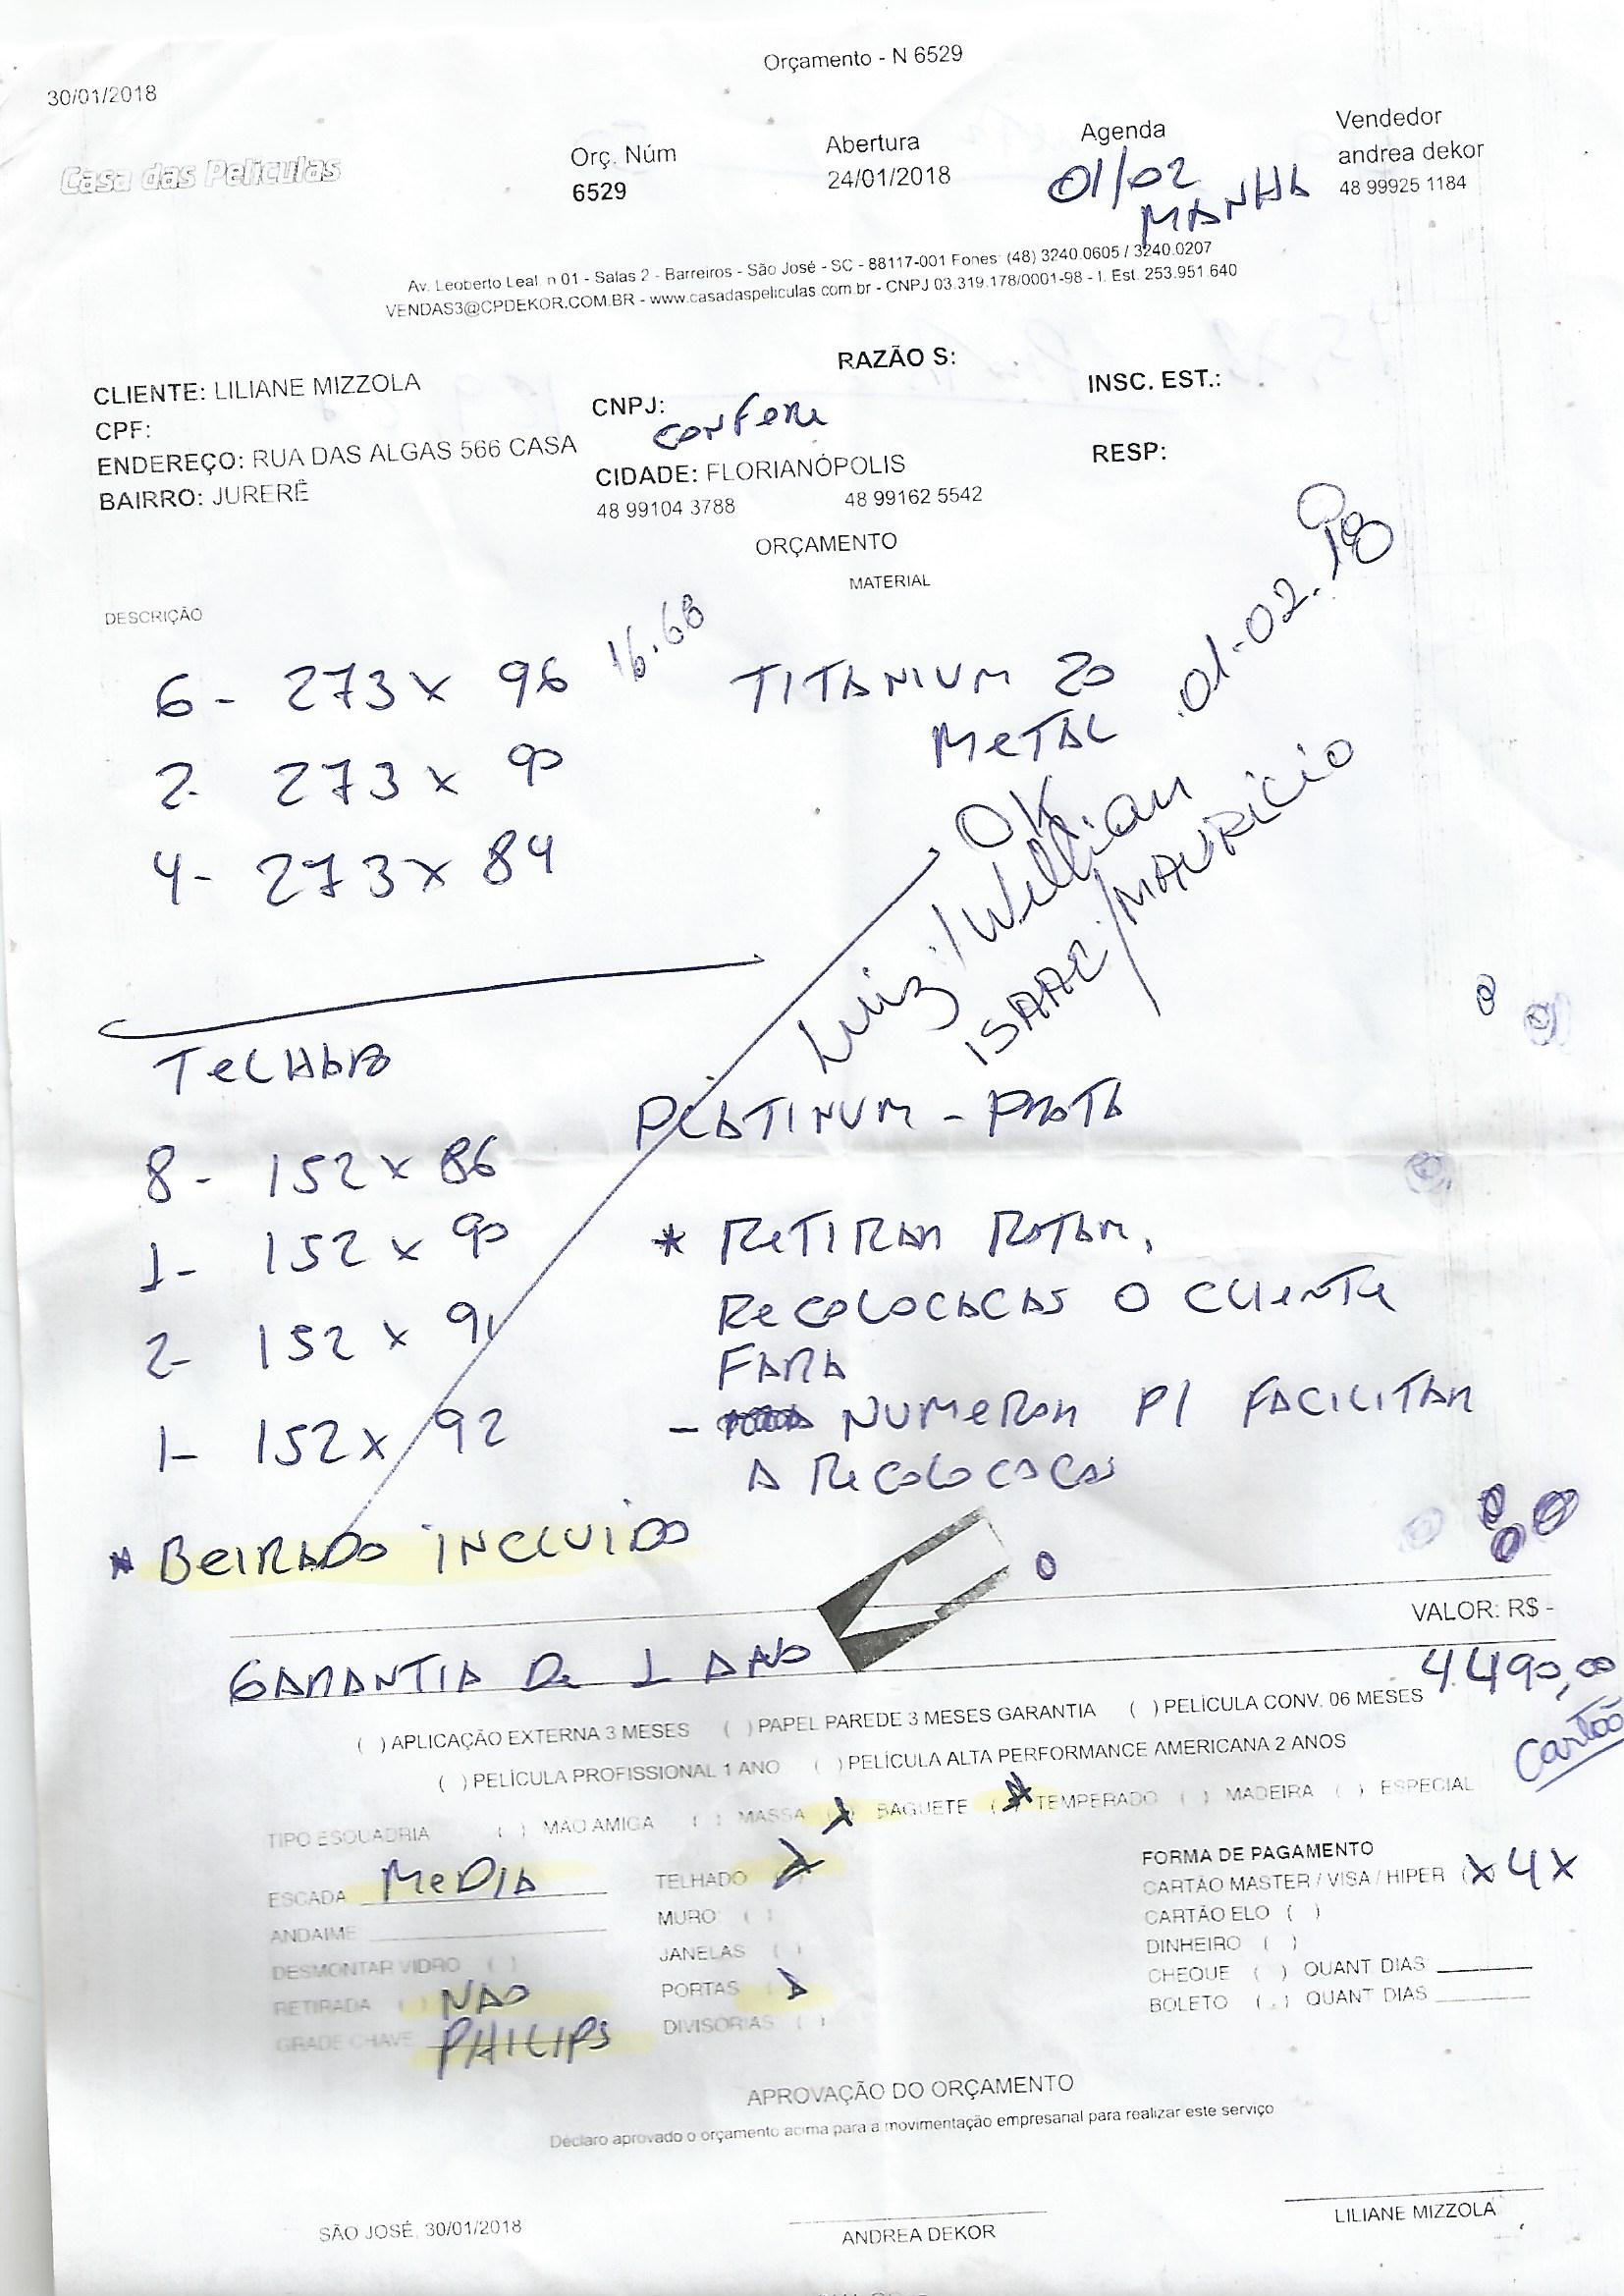 Orçamento - N 6529
30/01/2018
Casa das Películas
Orç. Núm
6529
Abertura
24/01/2018
Agenda
01/02
MANHA
Vendedor
andrea dekor
48 99925 1184
Av. Leoberto Leal, n 01 - Salas 2 - Barreiros - São José - SC - 88117-001 Fones: (48) 3240.0605 / 3240.0207
VENDAS3@CPDEKOR.COM.BR - www.casadaspeliculas.com.br - CNPJ 03.319.178/0001-98 - I. Est. 253.951.640
RAZÃO S:
CLIENTE: LILIANE MIZZOLA
CNPJ:
INSC. EST.:
CPF:
CONFERE
ENDEREÇO: RUA DAS ALGAS 566 CASA
CIDADE: FLORIANÓPOLIS
RESP:
BAIRRO: JURERÊ
48 99104 3788 48 99162 5542
ORÇAMENTO
MATERIAL
DESCRIÇÃO
6 - 273 x 96 16.68
TITANIUM 20
METAL
01-02.18
2- 273 x 90
4- 273 x 84
OK
Luiz / Willian
ISAAC / MAURICIO
TELHADO
PLATINUM - PRATA
8 - 152 x 86
1- 152 x 90
2- 152 x 91
1- 152 x 92
* RETIRAR
RECOLOCACAO O CLIENTE
FARA
- NUMERAR P/ FACILITAR
A RECOLOCACAO
* BEIRADO INCLUIDO
VALOR: R$ -
4.490,00
Cartão
GARANTIA DE 1 ANO
( ) APLICAÇÃO EXTERNA 3 MESES ( ) PAPEL PAREDE 3 MESES GARANTIA ( ) PELÍCULA CONV. 06 MESES
( ) PELÍCULA PROFISSIONAL 1 ANO ( ) PELÍCULA ALTA PERFORMANCE AMERICANA 2 ANOS
TIPO ESQUADRIA ( ) MAO AMIGA ( ) MASSA (X) BAGUETE (X) TEMPERADO ( ) MADEIRA ( ) ESPECIAL
ESCADA MEDIA
ANDAIME
DESMONTAR VIDRO ( )
RETIRADA ( ) NAO
GRADE CHAVE PHILIPS
TELHADO X
MURO ( )
JANELAS ( )
PORTAS
DIVISORIAS ( )
FORMA DE PAGAMENTO
CARTÃO MASTER / VISA / HIPER (X 4X
CARTÃO ELO ( )
DINHEIRO ( )
CHEQUE ( ) QUANT DIAS
BOLETO ( ) QUANT DIAS
APROVAÇÃO DO ORÇAMENTO
Declaro aprovado o orçamento acima para a movimentação empresarial para realizar este serviço
SÃO JOSÉ, 30/01/2018
ANDREA DEKOR
LILIANE MIZZOLA